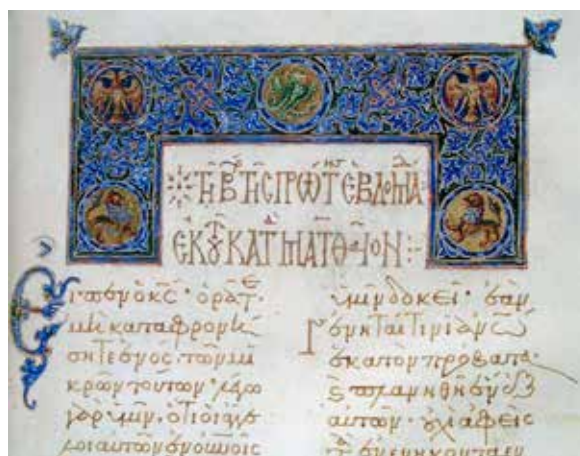 τῇ Β τῆς πρώτ ἑβδομα
ἐκ τοῦ κατ Ματθαῖον
Εἶπεν ὁ κς· ὁρᾶτε
μὴ καταφρονή
σητε ἑνὸς τῶν μι
κρῶν τούτων· λέγω
γὰρ ὑμῖν· ὅτι οἱ ἄγγε
λοι αὐτῶν ἐν οὐνοις
ὑμῖν δοκεῖ· ἐὰν
γένηταί τινι ἀνω
ἑκατὸν πρόβατα·
καὶ πλανηθῇ ἓν ἐξ
αὐτῶν· οὐχὶ ἀφεὶς
τὰ ἐνενηκονταεν